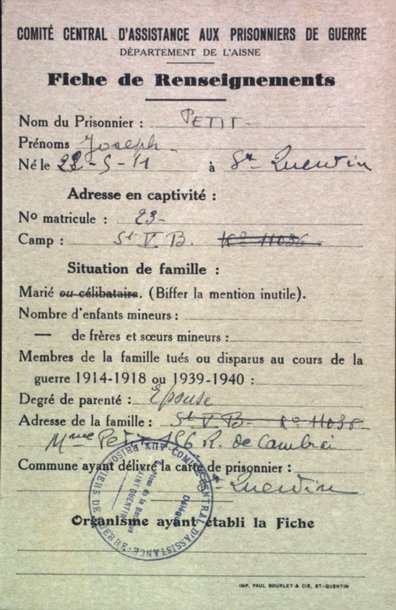 COMITÉ CENTRAL D'ASSISTANCE AUX PRISONNIERS DE GUERRE
DÉPARTEMENT DE L'AISNE
Fiche de Renseignements
Nom du Prisonnier : PETIT
Prénoms Joseph
Né le 22-5-11 à St Quentin
Adresse en captivité :
No matricule : 23
Camp : St V B. No 11036
Situation de famille :
Marié ou célibataire. (Biffer la mention inutile).
Nombre d'enfants mineurs :
— de frères et sœurs mineurs :
Membres de la famille tués ou disparus au cours de la
guerre 1914-1918 ou 1939-1940 :
Degré de parenté : Epouse
Adresse de la famille : St V B No 11036
Mme Petit 186 R. de Cambrai
Commune ayant délivré la carte de prisonnier :
St Quentin
Organisme ayant établi la Fiche
COMITÉ CENTRAL D'ASSISTANCE AUX PRISONNIERS DE GUERRE
SAINT QUENTIN
IMP. PAUL BOURLET & CIE, ST-QUENTIN